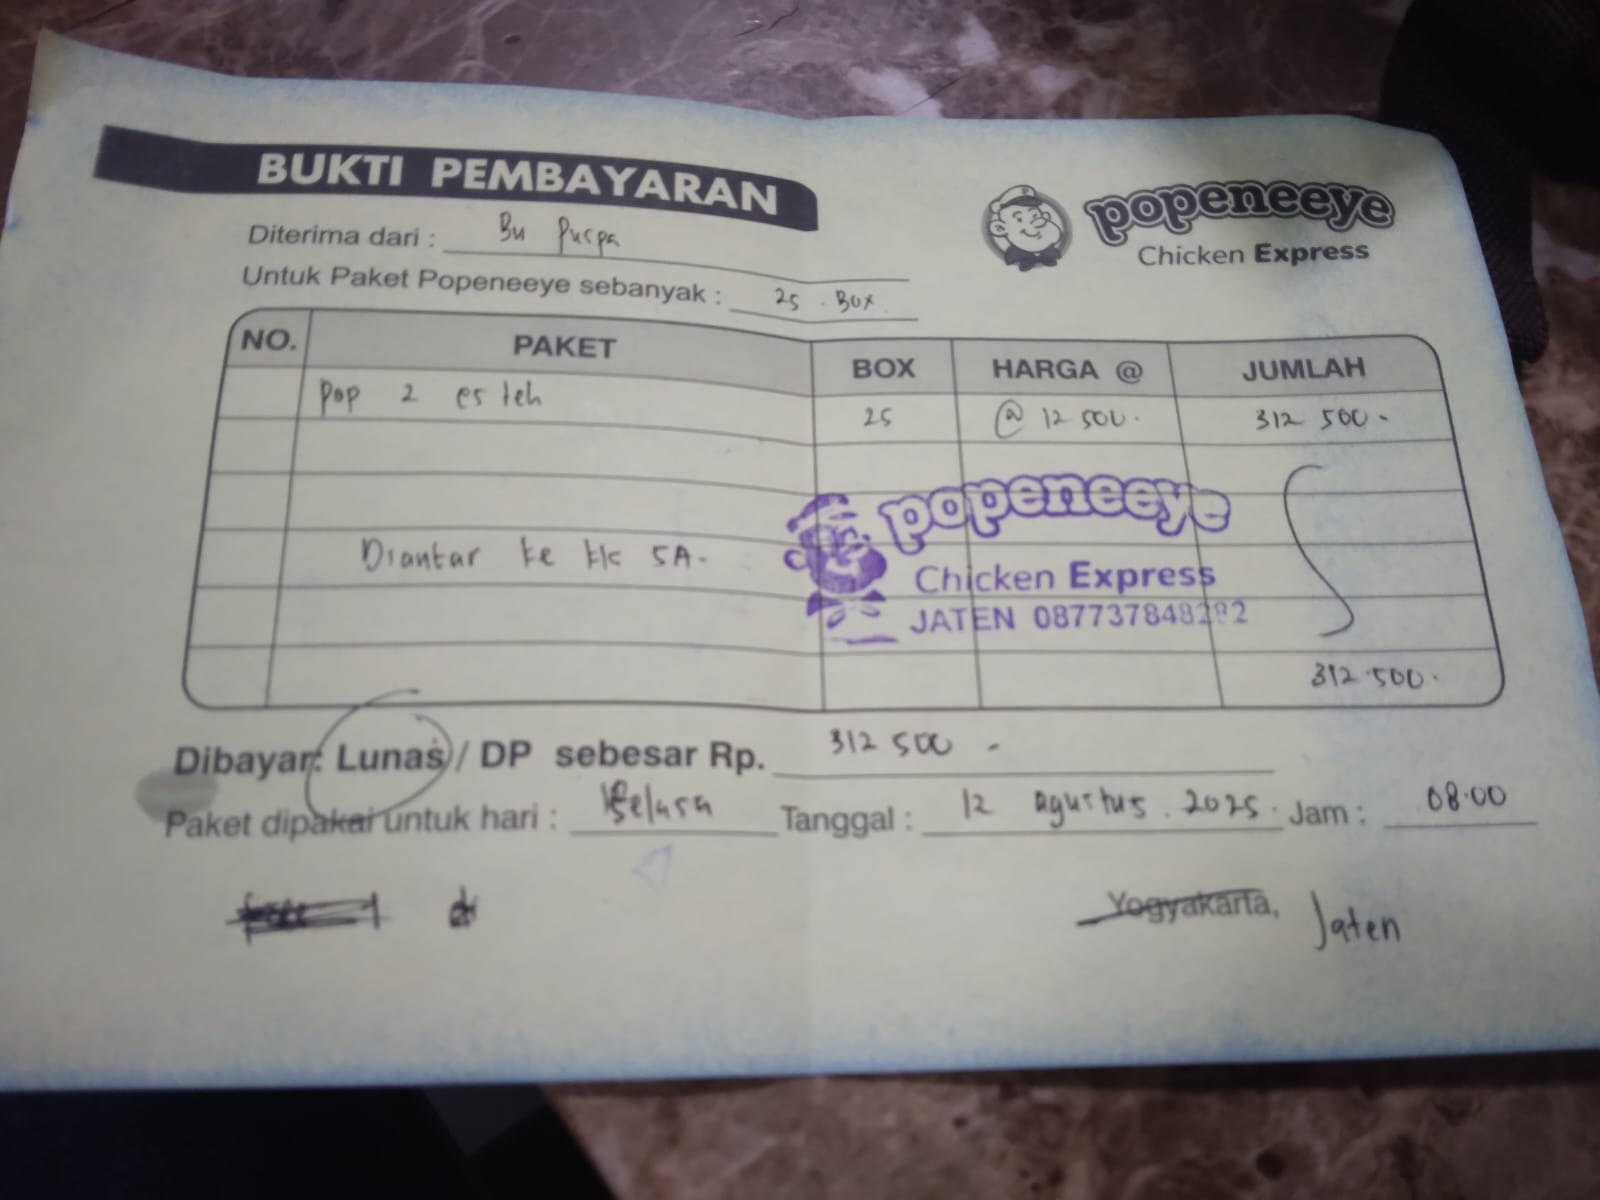 BUKTI PEMBAYARAN
popeneeye
Chicken Express
Diterima dari : Bu Puspa
Untuk Paket Popeneeye sebanyak : 25 . Box
NO. PAKET BOX HARGA @ JUMLAH
Pop 2 es teh 25 @ 12 500. 312 500 -
popeneeye
Diantar ke klc 5A.
Chicken Express
JATEN 087737848282
312.500.
Dibayar: Lunas / DP sebesar Rp. 312 500 -
Paket dipakai untuk hari : Selasa Tanggal : 12 Agustus. 2025. Jam : 08.00
Yogyakarta, Jaten